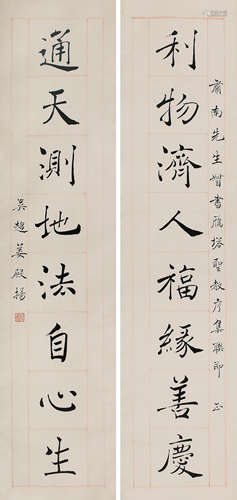 肅南先生博書雁塔聖教序集聯即正
利物濟人福緣善慶
通天測地法自心生
吳趨姜殿揚